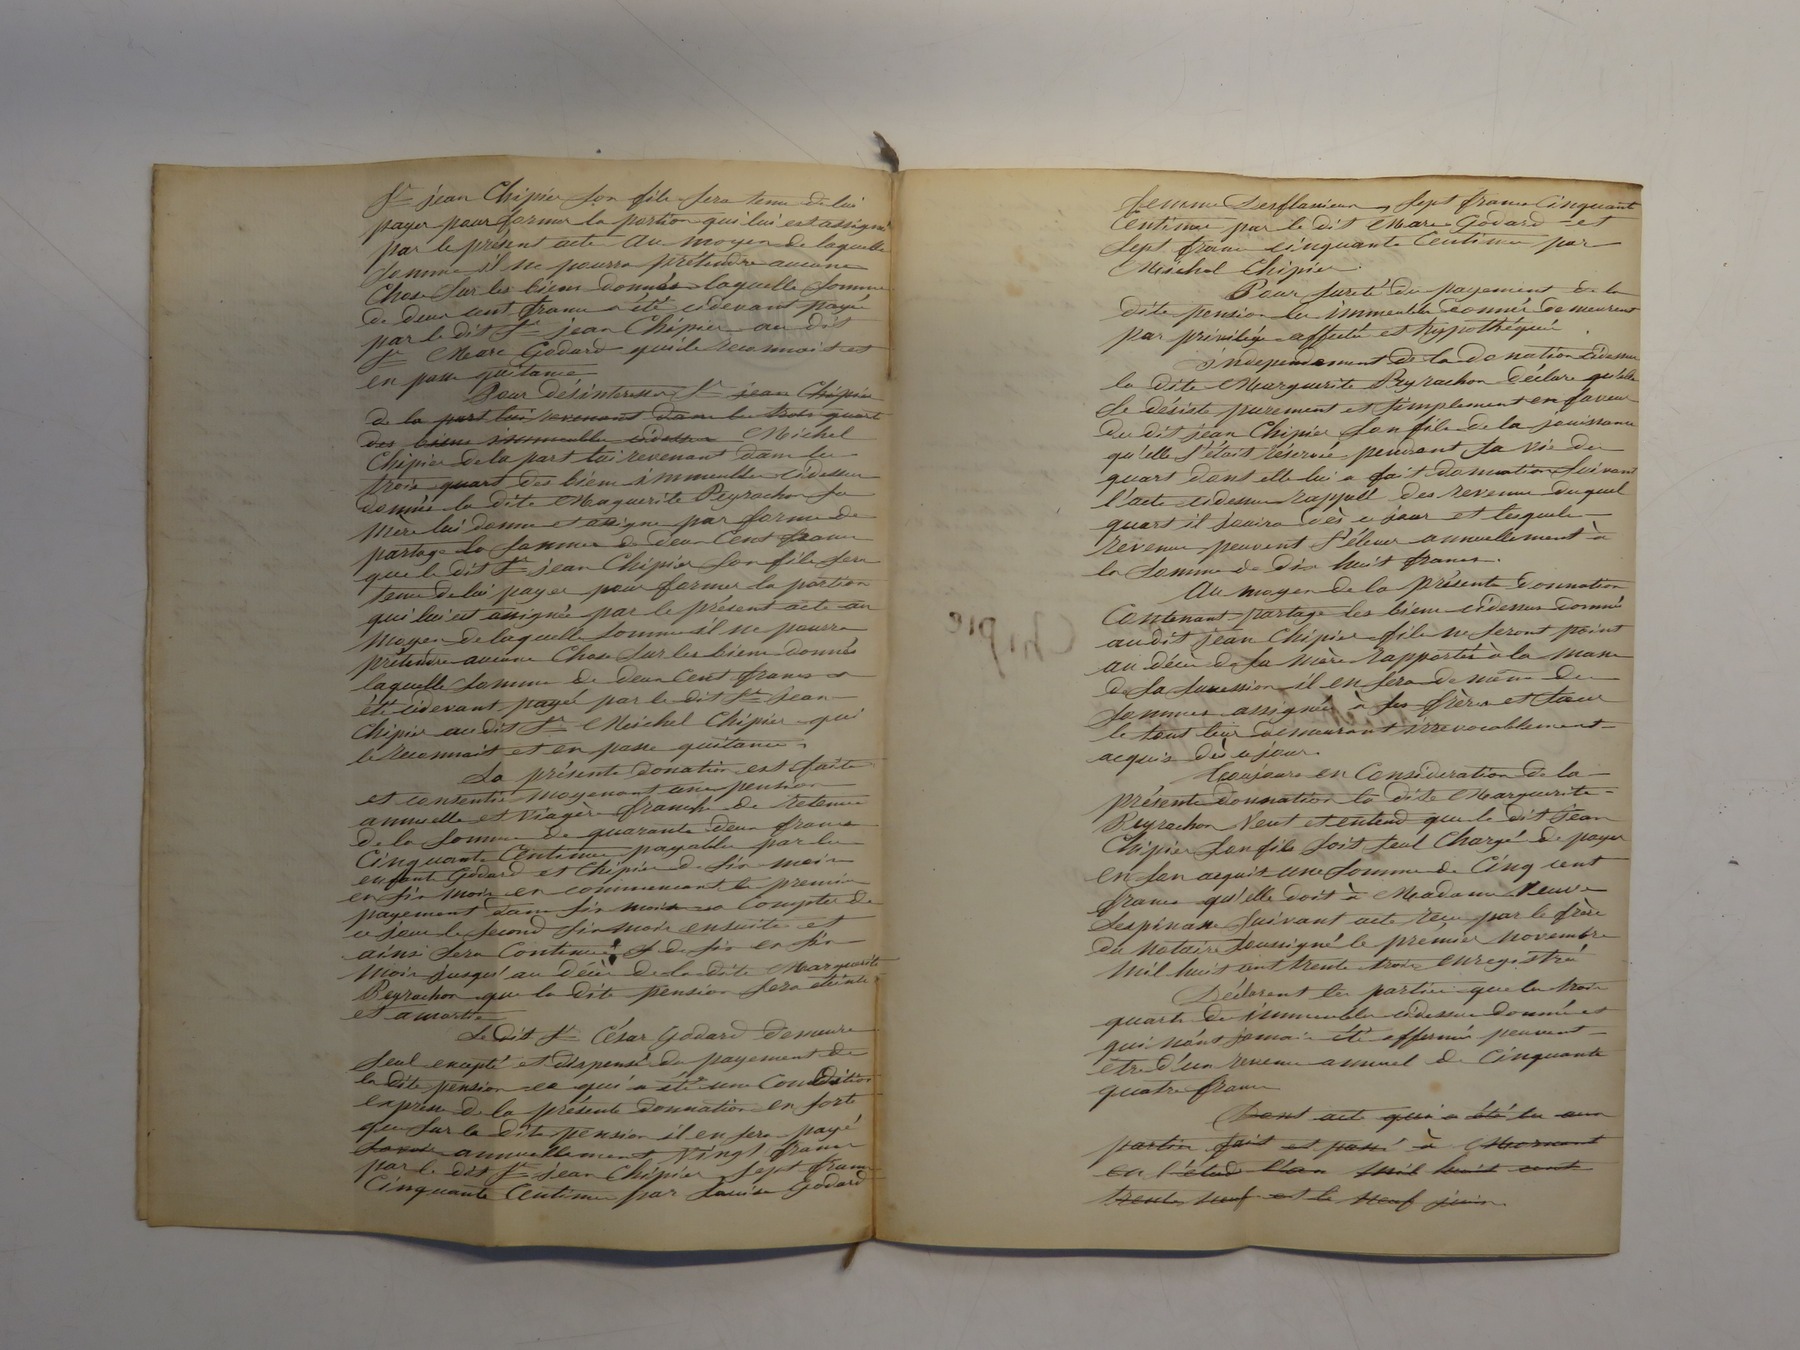 Sr jean Chipier son fils sera tenu de lui
payer pour former la portion qui lui est assigné
par le présent acte au moyen de laquelle
somme il ne pourra prétendre aucune
Chose sur les biens donnés laquelle somme
de deux cent francs a été cidevant payé
par le dit Sr jean Chipier au dit
Sr Marc Godard qui le reconnait et
en passe quitance
Pour désintéresser Sr jean Chipier
de la part lui revenant dans les trois quarts
des biens immeubles cidessus Michel
Chipier de la part lui revenant dans les
trois quart des biens immeubles cidessus
donnés la dite Maguerite Peyrachon sa
mère lui donne et assigne par forme de
partage la somme de deux Cent francs
que le dit Sr jean Chipier son fils sera
tenu de lui payer pour former la portion
qui lui est assignée par le présent acte au
moyen de laquelle somme il ne pourra
prétendre aucune Chose sur les biens donnés
laquelle somme de deux Cent francs a
été cidevant payé par le dit Sr jean
Chipier au dit Sr Michel Chipier qui
le reconnait et en passe quitance.
La présente donation est faite
et consentie moyenant une pension
annuelle et viagère franche de retenue
de la somme de quarante deux francs
Cinquante Centimes payables par les
enfants Godard et Chipier de six mois
en six mois en commencant le premier
payement dans six mois a Compter de
ce jour le second six mois ensuite et
ainsi sera Continué de six en six
mois jusqu'au décès de la dite Marguerite
Peyrachon que la dite pension sera éteinte
et amortie
Le dit Sr César Godard demeure
seul excepté et dispensé du payement de
la dite pension ce qui a été une Condition
expresse de la présente donnation en sorte
que sur la dite pension il en sera payé
savoir annuellement Vingt francs
par le dit Sr jean Chipier sept francs
Cinquante Centimes par Louise Godard
femme Desflassieux, sept francs Cinquante
Centimes par le dit Marc Godard et
sept francs cinquante Centimes par
Michel Chipier.
Pour sureté du payement de la
dite pension les immeubles donnés demeurent
par privilége affecté et hypothéqués.
indépendament de la donation cidessus
la dite Marguerite Peyrachon déclare qu'elle
se désiste purement et simplement en faveur
du dit jean Chipier son fils de la jouissance
qu'elle s'était réservée pendant sa vie du
quart dont elle lui a fait donnation suivant
l'acte cidessus rappelé des revenus duquel
quart il jouira dès ce jour et lesquels
revenus peuvent s'élever annuellement à
la somme de dix huit francs.
Au moyen de la présente donnation
Contenant partage les biens cidessus donnés
au dit jean Chipier fils ne seront point
au décès de sa mère rapportés à la masse
de sa succession il en sera de même des
sommes assignées à ses frères et sœur
le tout leur demeurant irrévocablement
acquis dès ce jour.
Toujours en Considération de la
présente donnation la dite Marguerite
Peyrachon Veut et entend que le dit Jean
Chipier son fils soit seul Chargé de payer
en son acquit une somme de Cinq cent
francs qu'elle doit à Madame Veuve
Lespinasse suivant acte reçu par le frère
du notaire soussigné le prémier novembre
mil huit cent trente trois enregistré
Déclarent les parties que les trois
quarts des immeubles cidessus donnés et
qui n'ont jamais été affermé peuvent
etre d'un revenu annuel de Cinquante
quatre francs
Dont acte qui a été lu aux
parties fait et passé à Mornant
en l'étude l'an mil huit cent
trente neuf et le neuf juin.